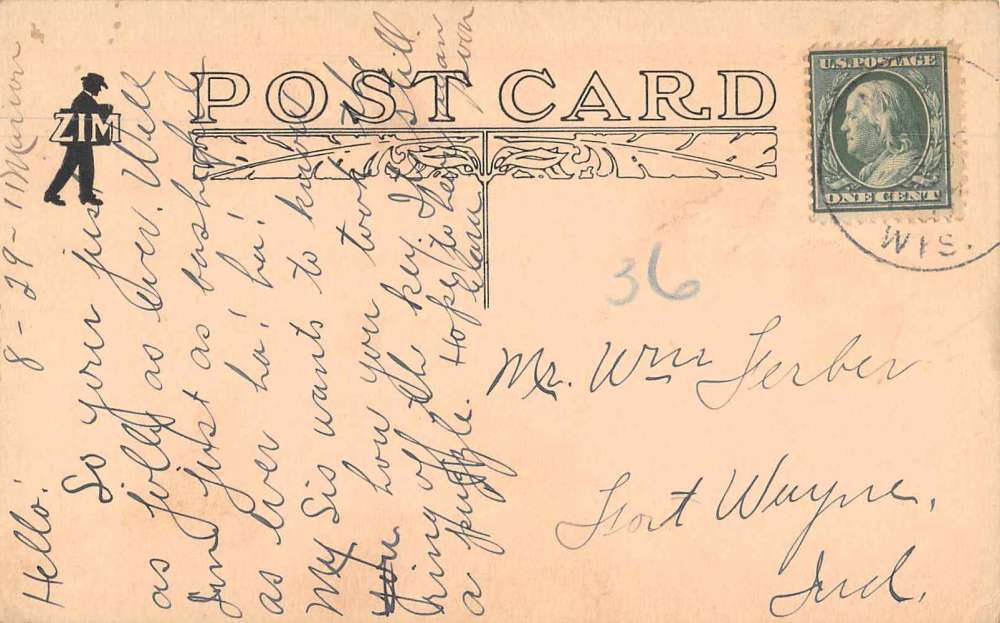 POST CARD
ZIM
U.S. POSTAGE
ONE CENT
WIS.
36
8-29-11 Marion
Hello.
So your just
as jolly as ever. Well
Im just as bashful
as ever ha! ha!
My Sis wants to know
how you took the
ring of the key. Its still
a puzzle. Hope to hear again
soon
Clara
Mr. Wm Ferber
Fort Wayne,
Ind.